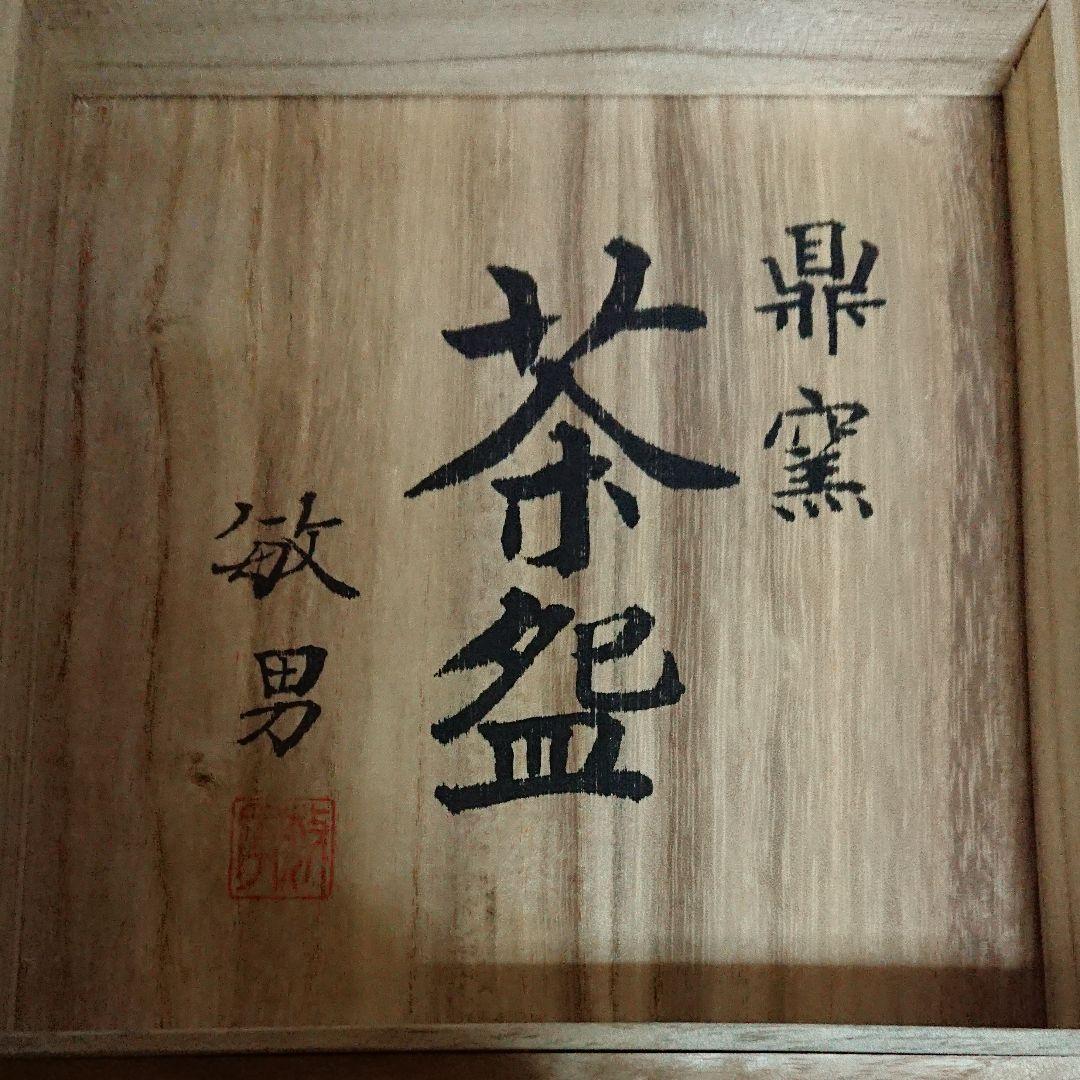 鼎窯
茶盌
敏男